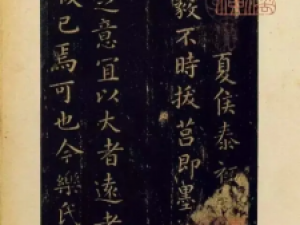 夏侯泰初
毅不時拔莒即墨
之意宜以大者遠者
後已焉可也今樂氏